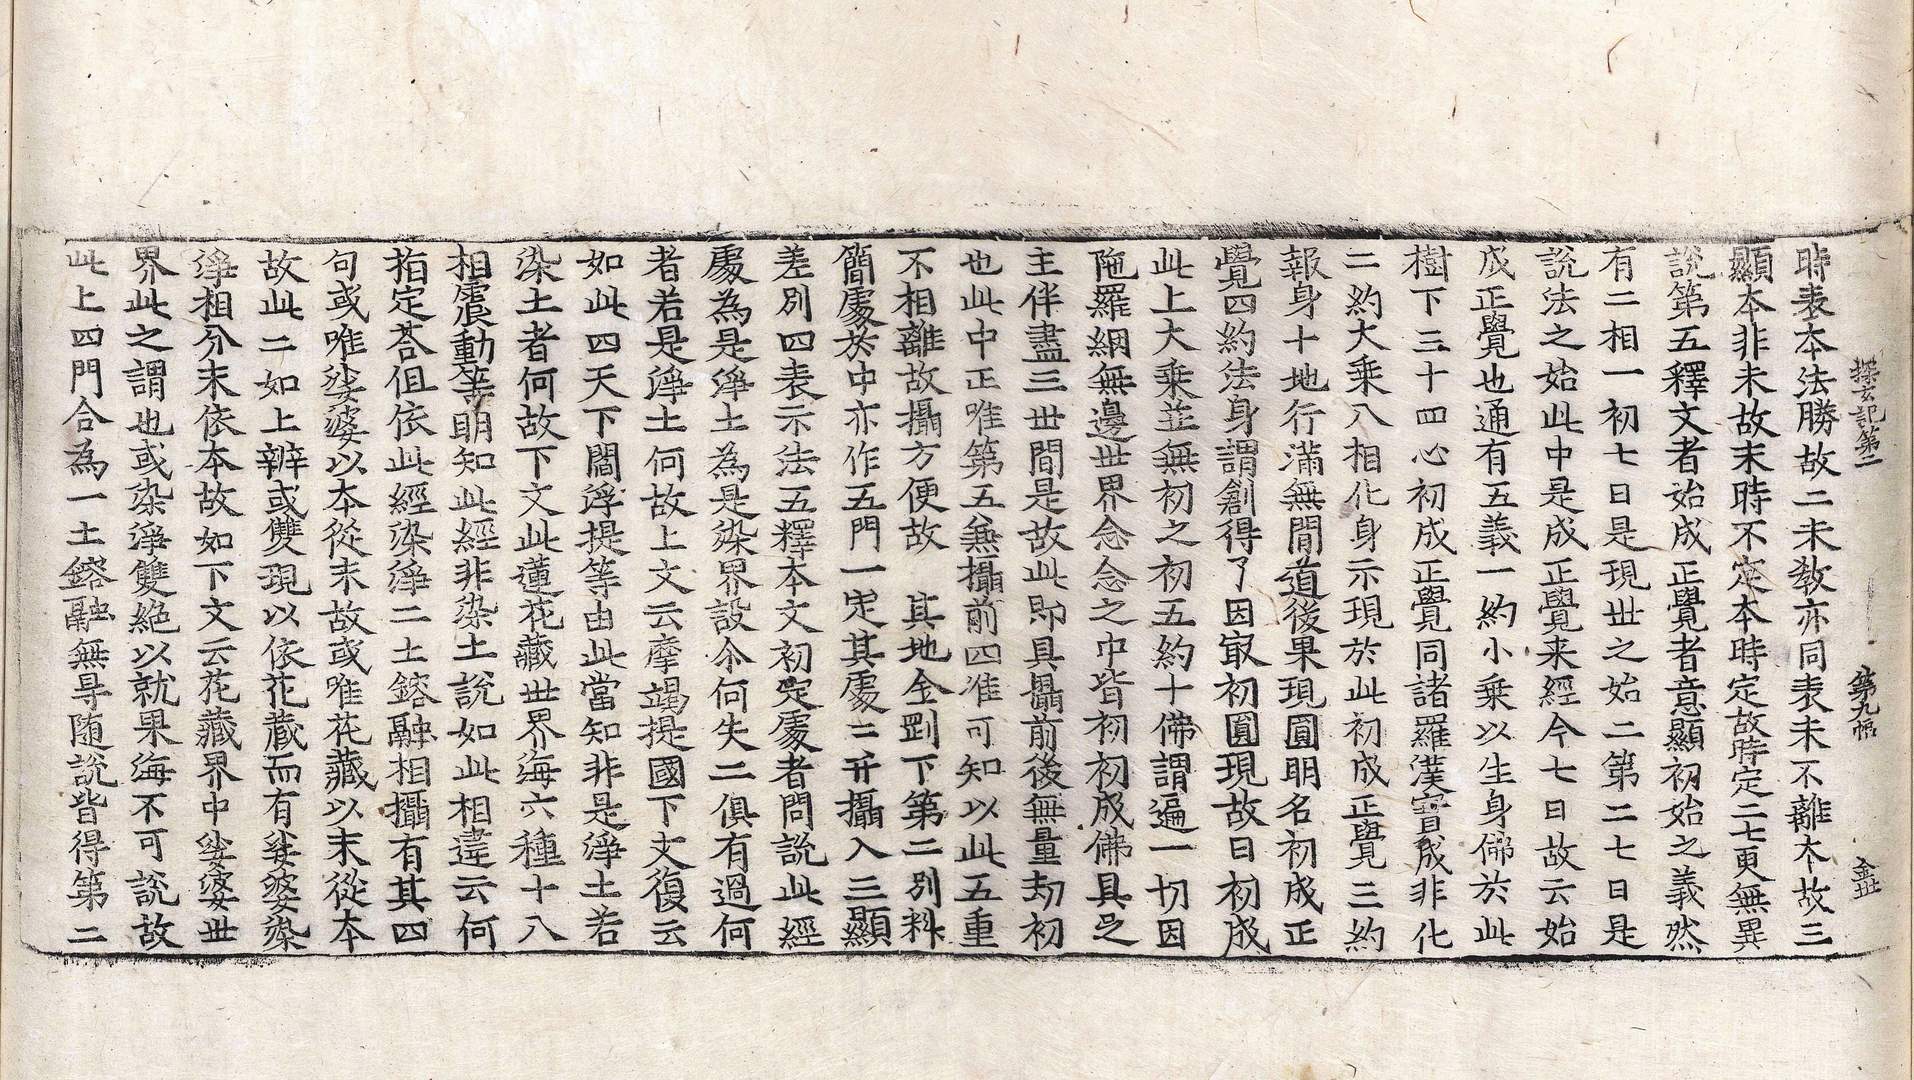 探玄記第二　第九幅　金世
時表本法勝故二末教亦同表末不離本故三
顯本非末故末時不定本時定故時定二七更無異
說第五釋文者始成正覺者意顯初始之義然
有二相一初七日是現世之始二第二七日是
說法之始此中是成正覺来經今七日故云始
成正覺也通有五義一約小乘以生身佛於此
樹下三十四心初成正覺同諸羅漢實成非化
二約大乘八相化身示現於此初成正覺三約
報身十地行滿無間道後果現圓明名初成正
覺四約法身謂創得了因㝡初圓現故日初成
此上大乘並無初之初五約十佛謂遍一切因
陁羅網無邊世界念念之中皆初初成佛具足
主伴盡三世間是故此即具攝前後無量劫初
也此中正唯第五兼攝前四准可知以此五重
不相離故攝方便故　其地金剛下第二別料
簡處於中亦作五門一定其處二开攝入三顯
差別四表示法五釋本文初定處者問說此經
處為是淨土為是染界設令何失二俱有過何
者若是淨土何故上文云摩竭提國下文復云
如此四天下閻浮提等由此當知非是淨土若
染土者何故下文此蓮花藏世界海六種十八
相震動等明知此經非染土說如此相違云何
指定荅但依此經染淨二土鎔融相攝有其四
句或唯娑婆以本從末故或唯花藏以末從本
故此二如上辨或雙現以依花藏而有娑婆染
淨相分末依本故如下文云花藏界中娑婆世
界此之謂也或染淨雙絕以就果海不可說故
此上四門合為一土鎔融無㝵随說皆得第二